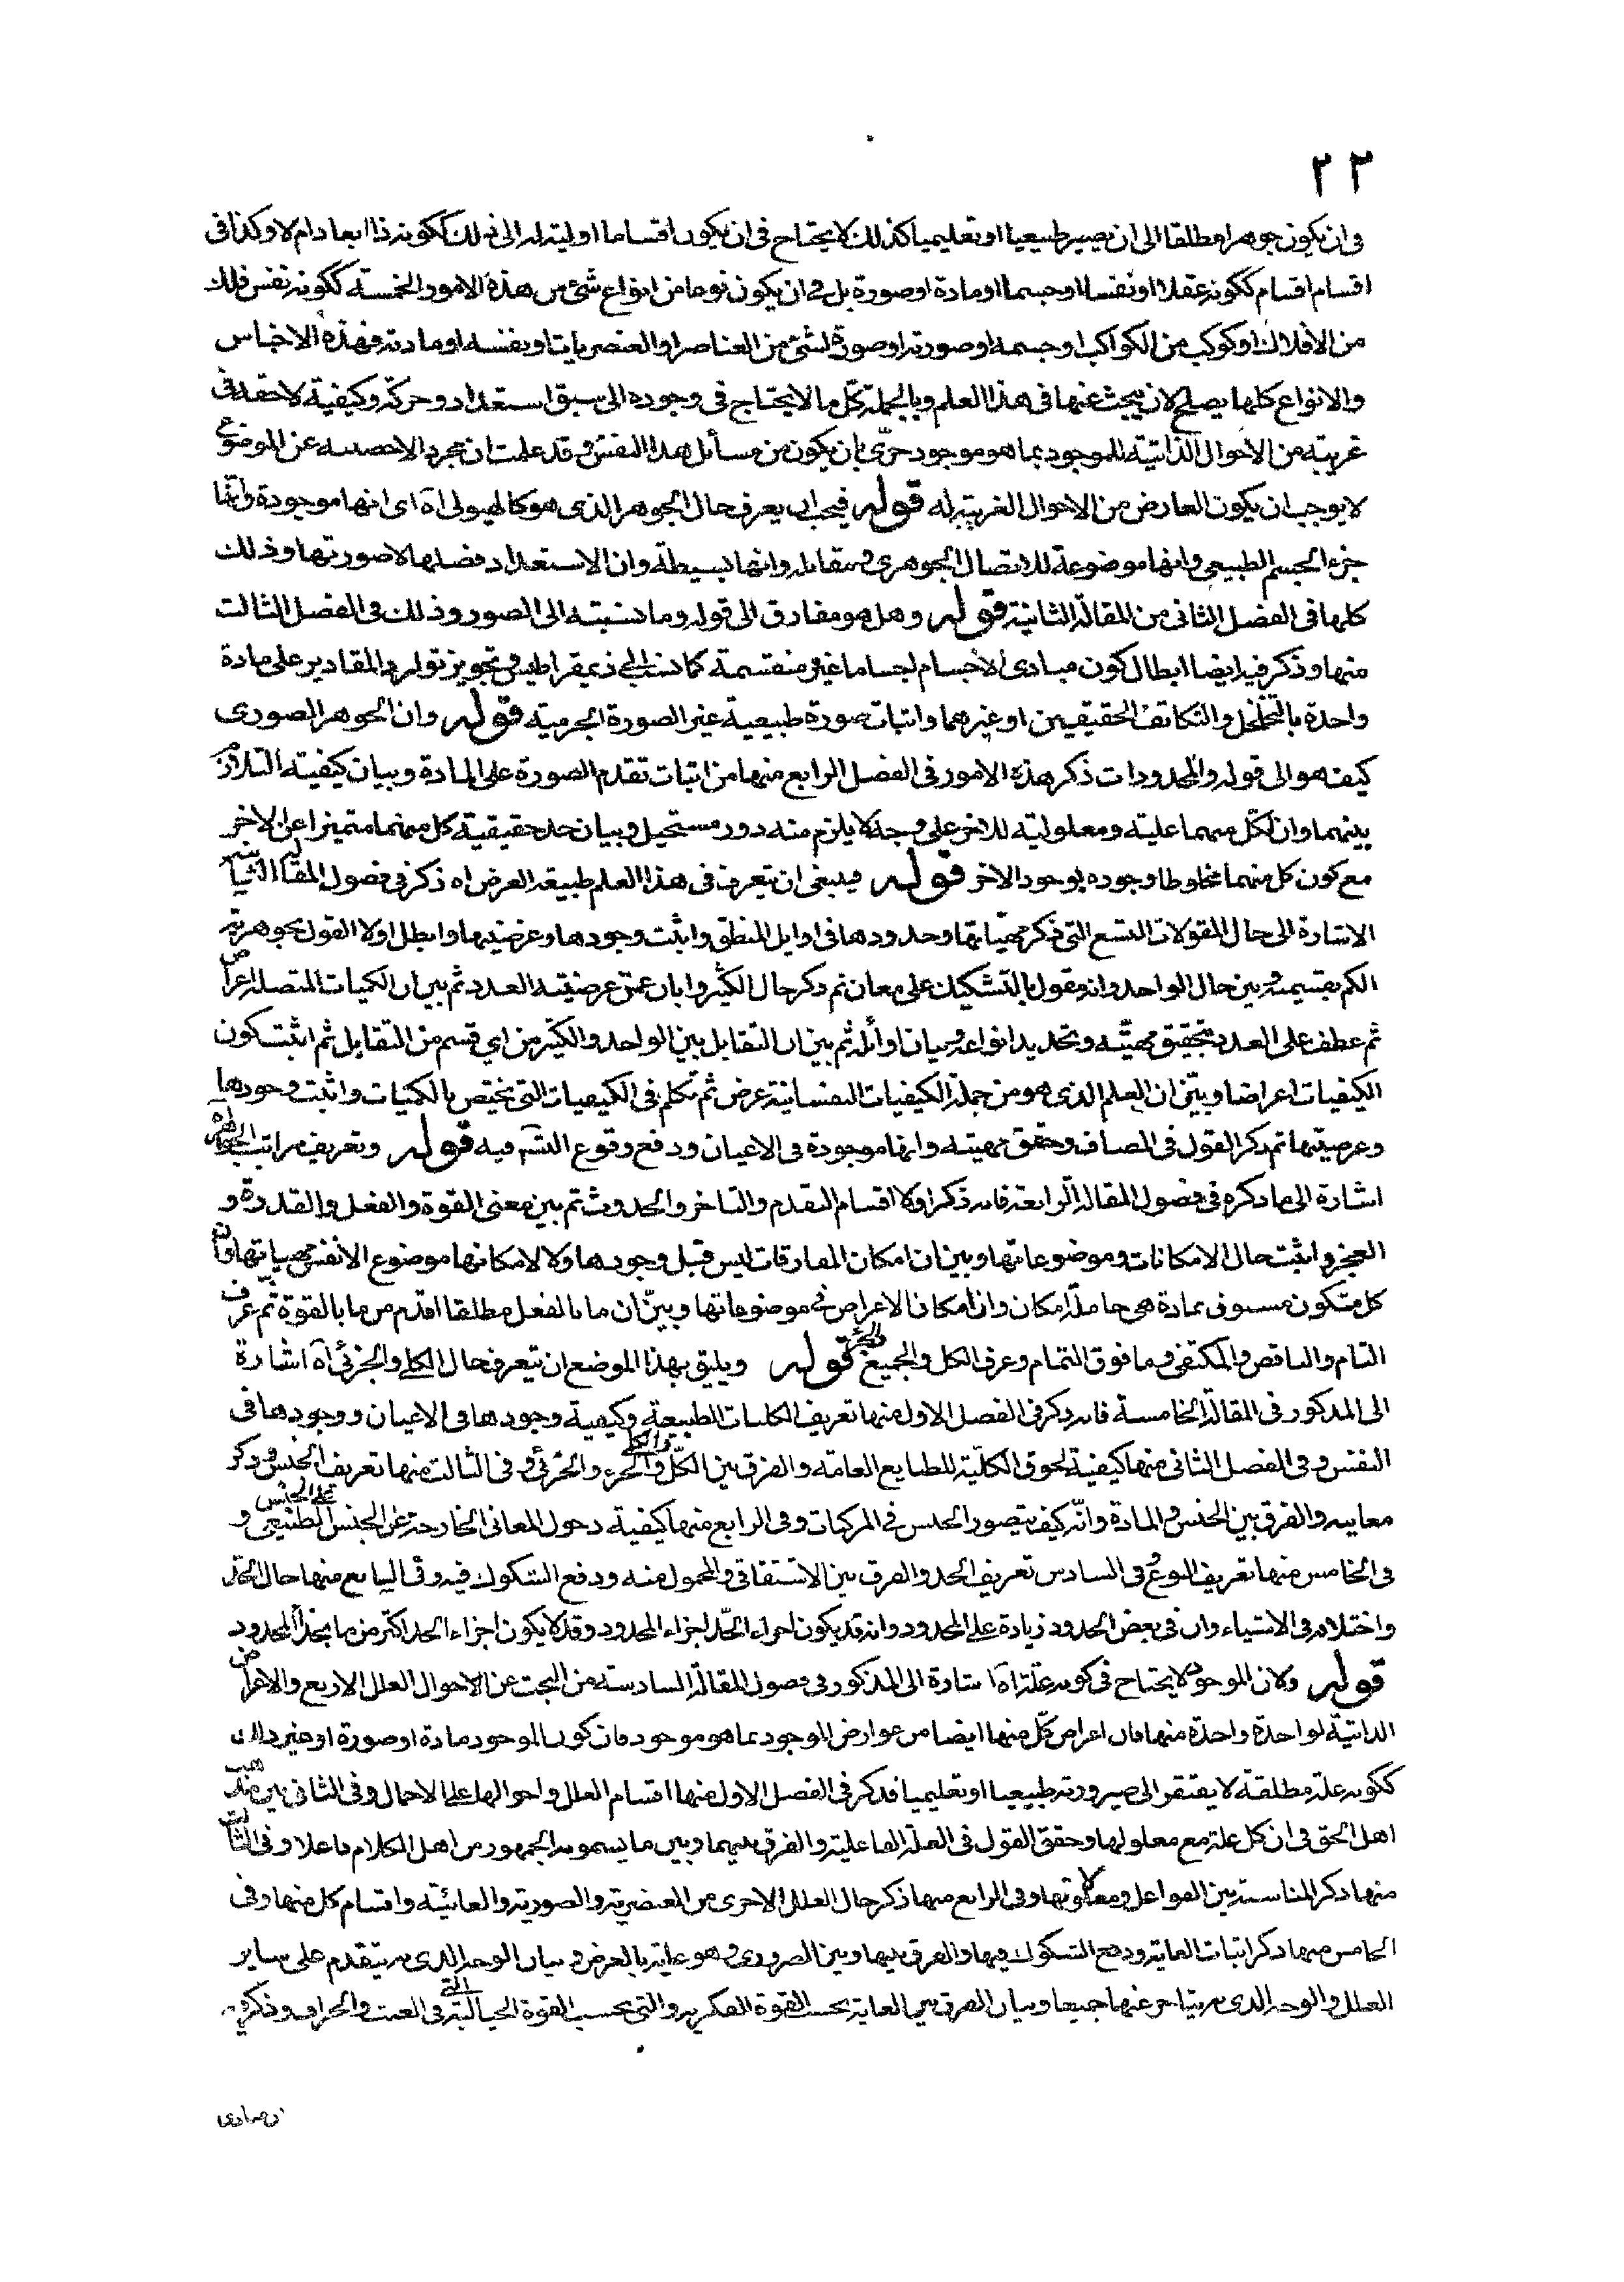 ٢٣
فى ان يكون جوهرا مطلقا الى ان يصير طبيعيا او تعليميا كذلك لا يحتاج فى ان يكون اقساما اولية له الى ذلك ككونه ذا ابعاد ام لا وكذا فى
اقسام اقسام ككونه عقلا او نفسا او جسما او مادة او صورة بل فى ان يكون نوعا من انواع شئ من هذه الامور الخمسة ككونه نفس فلك
من الافلاك او كوكب من الكواكب او جسمه او صورته او صورة لشئ من العناصر او العنصريات او نفسه او مادته فهذه الاجناس
والانواع كلها يصلح لان يبحث عنها فى هذا العلم وبالجملة كل ما لا يحتاج فى وجوده الى سبق استعداد وحركة وكيفية لاحقة
غريبة من الاحوال الذاتية للموجود بما هو موجود حرى بان يكون من مسائل هذا الفن وقد علمت ان مجرد الاخصيه عن الموضوع
لا يوجب ان يكون العارض من الاحوال الغريبة له قوله فيجب ان يعرف حال الجوهر الذى هو كالهيولى اه اى انها موجودة وانها
جزء الجسم الطبيعى وانها موضوعة للاتصال الجوهرى ومقابله وانها بسيطة وان الاستعداد فصلها لا صورتها وذلك
كلها فى الفصل الثانى من المقالة الثانية قوله وهل هو مفارق الى قوله وما نسبته الى الصور وذلك فى الفصل الثالث
منها وذكر فيه ايضا ابطال كون مبادى الاجسام اجساما غير منقسمة كما نسب الى ذيمقراطيس وتجويز توارد المقادير على مادة
واحدة بالتخلخل والتكاثف الحقيقيين او غيرهما واثبات صورة طبيعية غير الصورة الجرمية قوله وان الجوهر الصورى
كيف هو الى قوله والمحدودات ذكر هذه الامور فى الفصل الرابع منها من اثبات تقدم الصورة على المادة وبيان كيفية التلازم
بينهما وان لكل منهما علية ومعلولية للاخر على وجه لا يلزم منه دور مستحيل وبيان حد حقيقية كل منهما متميزا عن الاخر
مع كون كل منهما مخلوطا وجوده بوجود الاخر قوله فينبغى ان تعرف فى هذا العلم طبيعة العرض اه ذكر فى فصول المقالة الثالثة
الاشارة الى حال المقولات التسع التى ذكر مهياتها وحدودها فى اوايل المنطق واثبت وجودها وعرضيتها وابطل اولا القول بجوهرية
الكم بقسيميه وبين حال الواحد وانه مقول بالتشكيك على معان ثم ذكر حال الكثير وابان عن عرضية العدد ثم بين ان الكميات المتصلة اعراض
ثم عطف على العدد بتحقيق مهيته وتحديد انواعه وبيان اوائله ثم بين ان التقابل بين الواحد والكثير من اى قسم من التقابل ثم اثبت كون
الكيفيات اعراضا وبين ان العلم الذى هو من جملة الكيفيات النفسانية عرض ثم تكلم فى الكيفيات التى تختص بالكميات واثبت وجودها
وعرضيتها ثم ذكر القول فى المضاف وحقق مهيته وانها موجودة فى الاعيان ودفع وقوع الشبه فيه قوله وتعريف مراتب الجواهر
اشارة الى ما ذكره فى فصول المقالة الرابعة فانه ذكر اولا اقسام التقدم والتاخر والحدوث ثم بين معنى القوة والفعل والقدرة و
العجز واثبت حال الامكانات وموضوعاتها وبين ان امكان المفارقات ليس قبل وجودها ولا لامكانها موضوع الا نفس مهياتها وان
كل متكون مسبوق بمادة هى حاملة امكان وان امكان الاعراض فى موضوعاتها وبين ان ما بالفعل مطلقا اقدم من ما بالقوة ثم عرف
التام والناقص والمكتفى وما فوق التمام وعرف الكل والجميع والجزء قوله ويليق بهذا الموضع ان تتعرف حال الكلى والجزئى اه اشارة
الى المذكور فى المقالة الخامسة فانه ذكر فى الفصل الاول منها تعريف الكليات الطبيعية وكيفية وجودها فى الاعيان ووجودها فى
النفس وفى الفصل الثانى منها كيفية لحوق الكلية للطبايع العامه والفرق بين الكل والكلى والجزء والجزئى وفى الثالث منها تعريف الجنس وذكر
معانيه والفرق بين الجنس والمادة وانه كيف يتصور الجنس فى المركبات وفى الرابع منها كيفية دخول المعانى الخارجة عن الجنس على الجنس الطبيعى و
فى الخامس منها تعريف النوع وفى السادس تعريف الحد والفرق بين الاشتقاقى والمحمول منه ودفع الشكوك فيه وفى السابع منها حال الحد
واختلافه فى الاشياء وان فى بعض الحدود زيادة على المحدود وانه قد يكون اجزاء الحد اجزاء المحدود وقد لا يكون اجزاء الحد اكثر من ما بحذاء المحدود
قوله ولان الموجود لا يحتاج فى كونه علة اه اشارة الى المذكور فى فصول المقالة السادسة من البحث عن الاحوال العلل الاربع والاعراض
الذاتية لواحدة واحدة منها فان اعراض كل منها ايضا من عوارض الموجود بما هو موجود فان كون الموجود مادة او صورة او غير ذلك
ككونه علة مطلقة لا يفتقر الى صيرورته طبيعيا او تعليميا فذكر فى الفصل الاول منها اقسام العلل واحوالها على الاجمال وفى الثانى بين مذهب
اهل الحق فى ان كل علة مع معلولها وحقق القول فى العلة الفاعلية والفرق بينهما وبين ما يسمونه الجمهور من اهل الكلام فاعلا وفى الثالث
منها ذكر المناسبة بين الفواعل ومعلولاتها وفى الرابع منها ذكر حال العلل الاخرى من العنصرية والصورية والغائية واقسام كل منها وفى
الخامس منها ذكر اثبات الغاية ودفع الشكوك فيها والفرق بينها وبين الضرورى وهو غاية بالعرض وبيان الوجه الذى به يتقدم على ساير
العلل والوجه الذى به يتاخر عنها جميعا وبيان الفرق بين الغاية بحسب القوة الفكرية والتى بحسب القوة الخيالية التى فى العبث والجزاف وذكر فيه